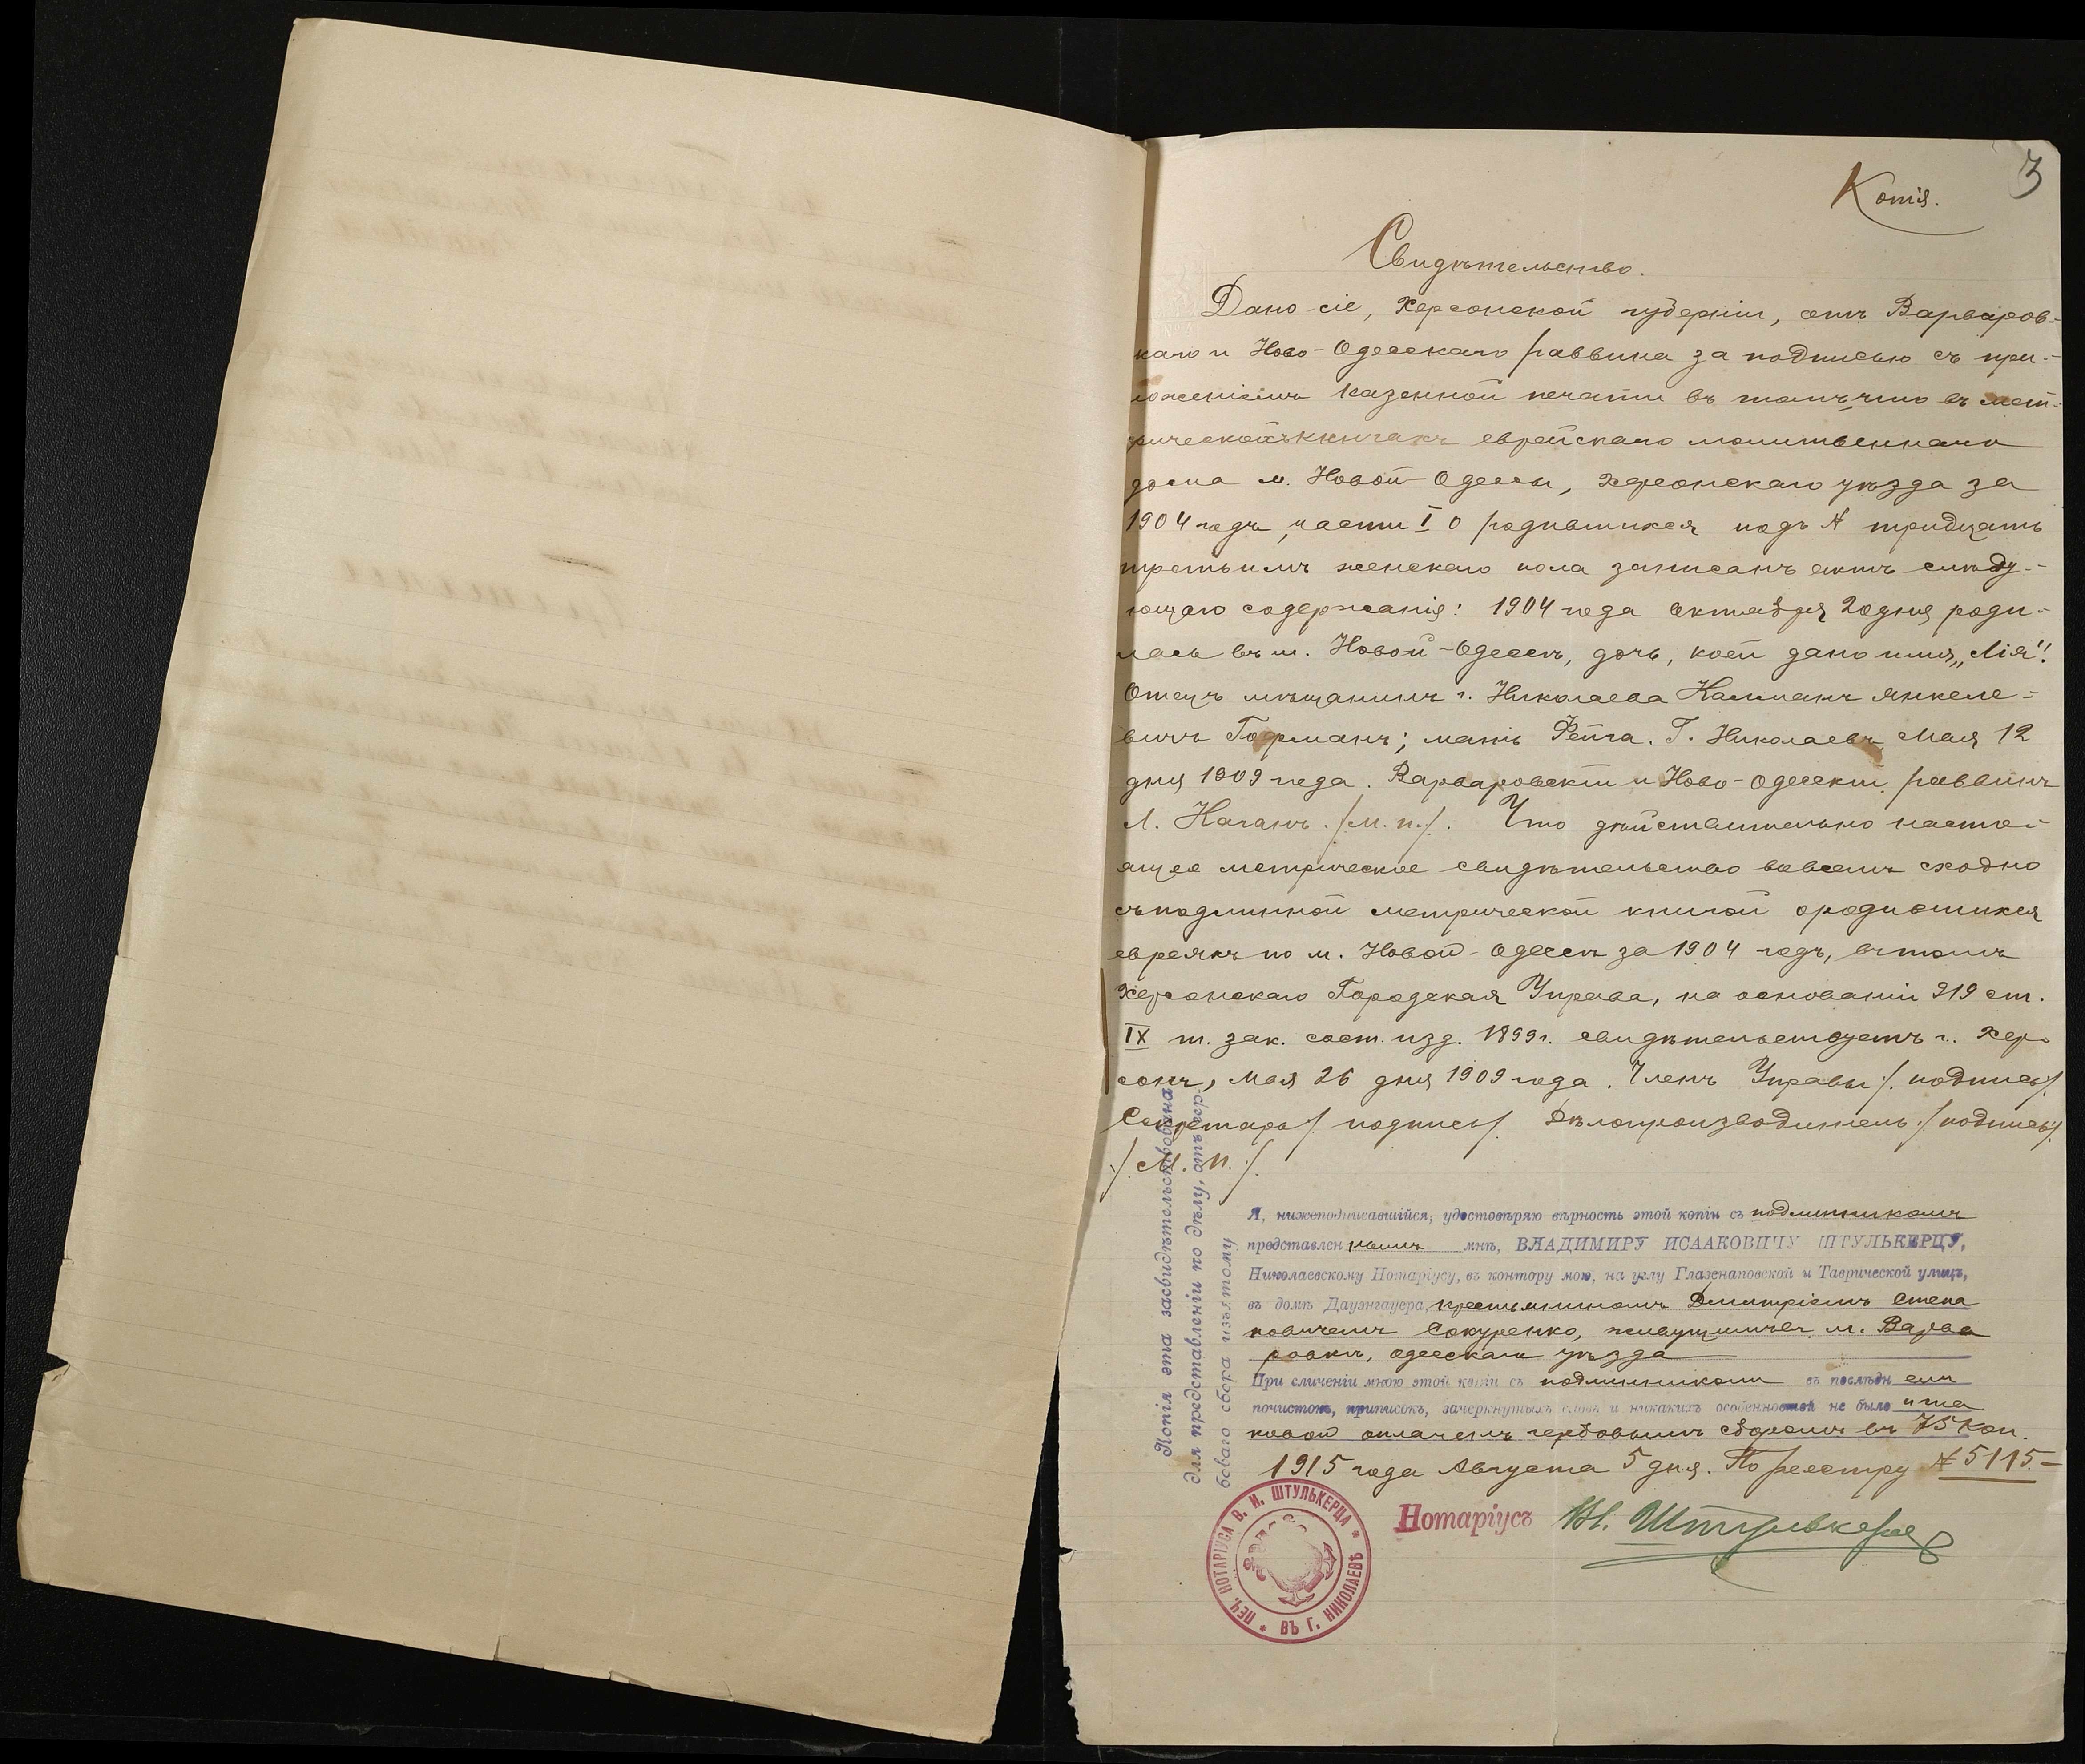 3
Копія.
Свидѣтельство.
Дано сіе, Херсонской губерніи, отъ Варваров-
скаго и Ново-Одесскаго раввина за подписью съ при-
ложеніемъ казенной печати въ томъ, что въ мет-
рической книгахъ еврейскаго молитвеннаго
дома м. Новой-Одессы, Херсонскаго уѣзда за
1904 годъ, части I о родившихся подъ № тридцать
третьимъ женскаго пола записанъ актъ слѣду-
ющаго содержанія: 1904 года Октября 20 дня роди-
лась въ м. Новой-Одессѣ, дочь, коей дано имя „Лія".
Отецъ мѣщанинъ г. Николаева Калманъ Янкеле-
вичъ Горманъ; мать Фейга. Г. Николаевъ Мая 12
дня 1909 года. Варваровскій и Ново-Одесскій раввинъ
Л. Каганъ. /М. п./. Что дѣйствительно насто-
ящее метрическое свидѣтельство вовсемъ сходно
съ подлинной метрической книгой о родившихся
евреяхъ по м. Новой-Одессѣ за 1904 годъ, въ томъ
Херсонскаго Городская Управа, на основаніи 919 ст.
IX т. зак. сост. изд. 1899 г. свидѣтельствуетъ г. Хер-
сонъ, Мая 26 дня 1909 года. Членъ Управы /. подпись/.
Секретарь /. подпись/. Дѣлопроизводитель /. подпись/.
/. М. п. /.
Копія эта засвидѣтельствована
для представленіи по дѣлу, отъ гер-
боваго сбора изъятому
Я, нижеподписавшійся, удостовѣряю вѣрность этой копіи съ подлинникомъ
представленнымъ мнѣ, ВЛАДИМИРУ ИСААКОВИЧУ ШТУЛЬКЕРЦУ,
Николаевскому Нотаріусу, въ контору мою, на углу Глазенаповской и Таврической улицъ,
въ домѣ Даунгауера, крестьяниномъ Дмитріемъ Степа
новичемъ Сокуренко, живущимъ въ м. Варва
ровкѣ, Одесскаго уѣзда
При сличеніи мною этой копіи съ подлинникомъ въ послѣднемъ
почистокъ, приписокъ, зачеркнутыхъ словъ и никакихъ особенностей не было и та
ковой оплаченъ гербовымъ сборомъ въ 75 коп.
1915 года Августа 5 дня. По реестру № 5115.
Нотаріусъ Вл. Штулькерцъ
ПЕЧ. НОТАРІУСА В. И. ШТУЛЬКЕРЦА * ВЪ Г. НИКОЛАЕВѢ *